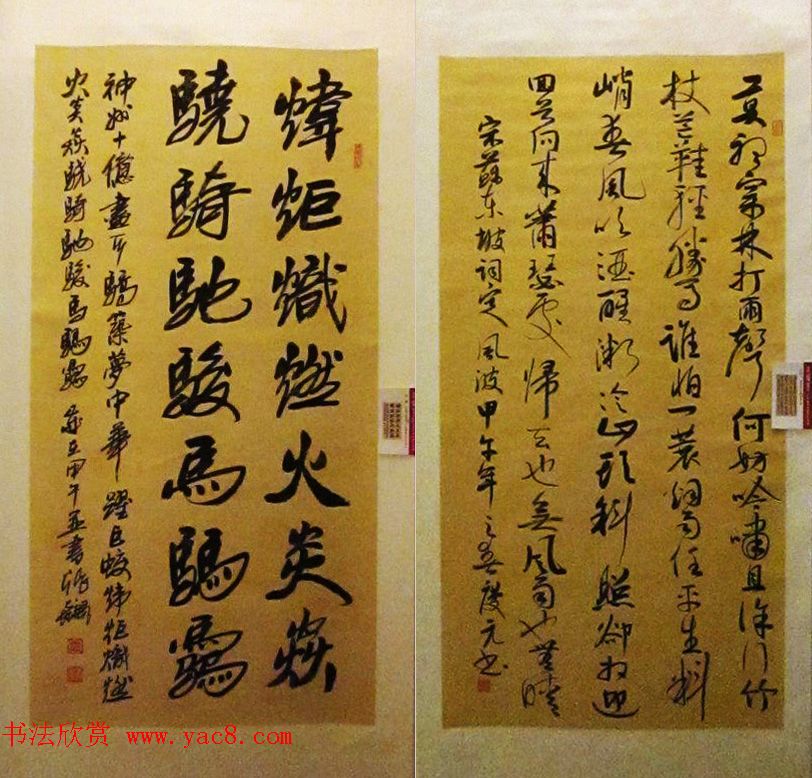 煒炬熾燃火炎焱
驍騎馳駿馬騳驫
神州十億盡天驕築夢中華躍巨蛟煒炬熾燃
火炎焱驍騎馳駿馬騳驫 甲午並書
莫聽穿林打雨聲何妨吟嘯且徐行竹
杖芒鞋輕勝馬誰怕一蓑煙雨任平生料
峭春風吹酒醒冷山頭斜照卻相迎
回首向來蕭瑟處歸去也無風雨也無晴
宋蘇東坡詞定風波甲午年之春慶元書
书法欣赏 www.yac8.com